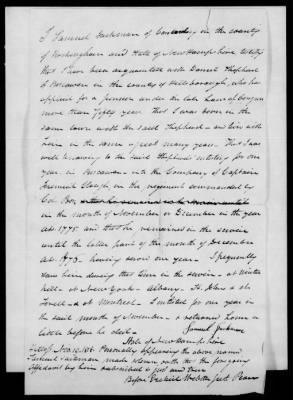 I Samuel Jackman of in the county
of Rockingham and State of New Hampshire testify
that I have been acquainted with Daniel Shepherd
of Boscawen in the county of Hillsborough, who has
applied for a pension under the late Law of Congress
more than fifty years. That I was born in the
same town with the said Shepherd and lived with
him in the same great many years. That I was
well knowing to the said Shepherd's inlisting for one
year in Boscawen into the Company of Captain
Jeremiah Clough in the regiment commanded by
Col. Poor,
in the month of November or December in the year
AD. 1775 and that he remained in the service
until the latter part of the month of December
AD. 1776 having served one year. I frequently
saw him during that time in the service at Winter
hill at New York Albany St. Johns &
& at Montreal I inlisted for one year in
the said month of November & returned home a
little before he did
Samuel Jackman
State of New Hampshire
Personally appearing the above named
Samuel Jackman made oath that the foregoing
affidavit by him subscribed is just and true
Before Ezekiel Webster Just. Peace